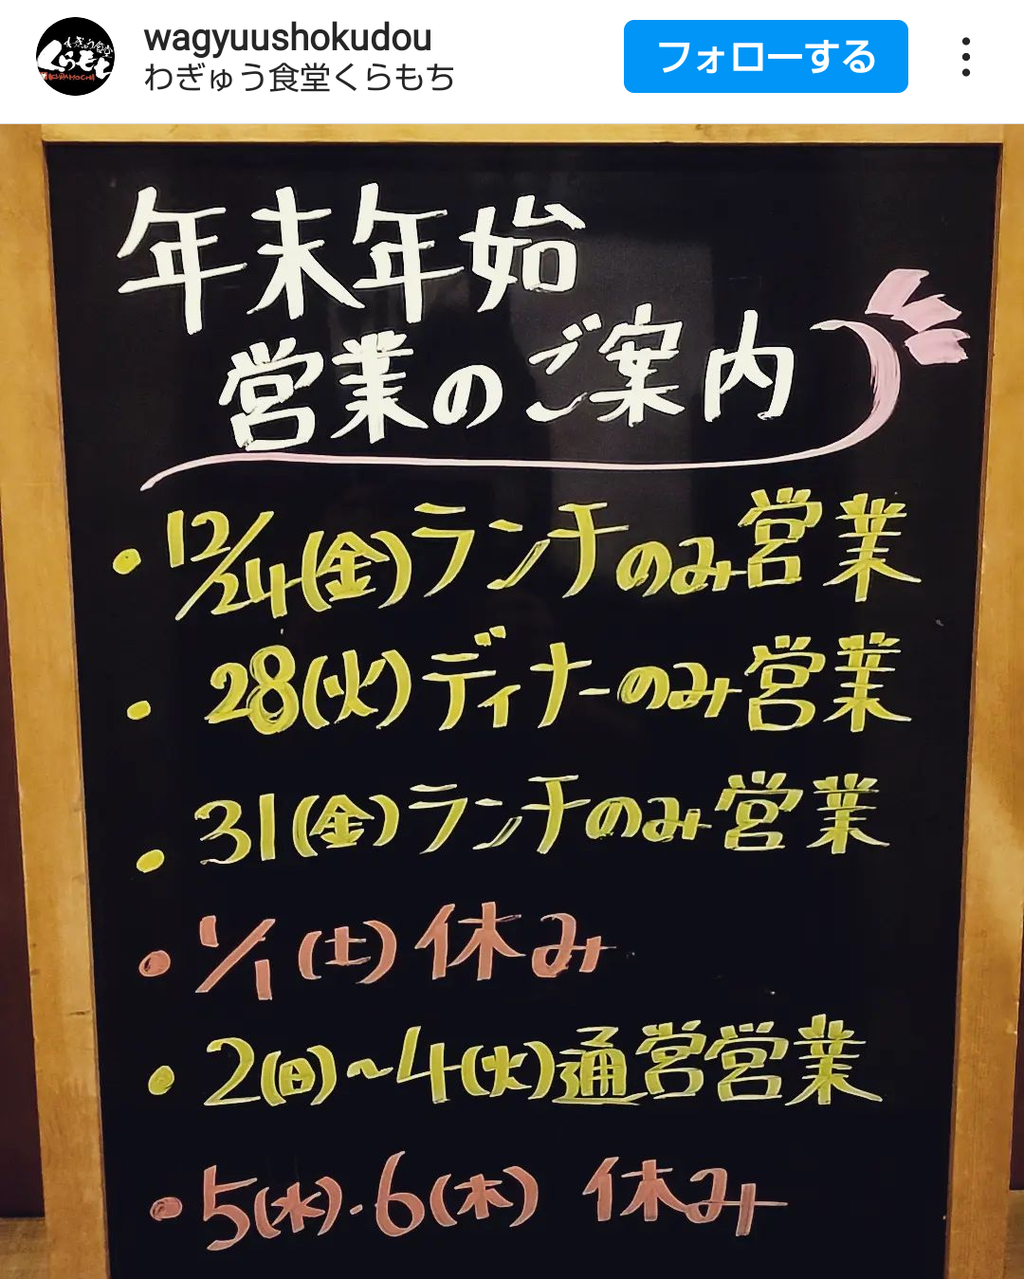 くらもち
wagyuushokudou
わぎゅう食堂くらもち
フォローする
年末年始
営業のご案内
・12/24(金)ランチのみ営業
・28(火)ディナーのみ営業
・31(金)ランチのみ営業
・1/1(土)休み
・2(日)~4(火)通営営業
・5(水)・6(木) 休み